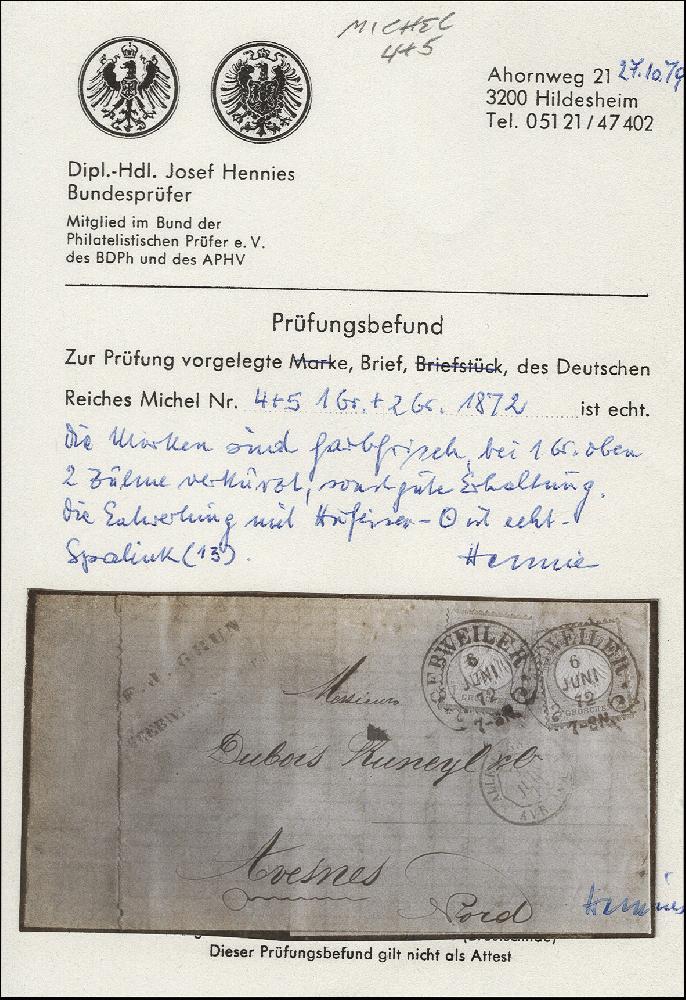 MICHEL
4+5
Ahornweg 21 27.10.79
3200 Hildesheim
Tel. 05121/47402
Dipl.-Hdl. Josef Hennies
Bundesprüfer
Mitglied im Bund der
Philatelistischen Prüfer e. V.
des BDPh und des APHV
Prüfungsbefund
Zur Prüfung vorgelegte Marke, Brief, Briefstück, des Deutschen
Reiches Michel Nr. 4+5 1 Gr. + 2 Gr. 1872 ist echt.
Die Marken sind farbfrisch, bei 1 Gr. oben
2 Zähne verkürzt, sonst gute Erhaltung.
Die Entwertung mit Hufeisen-O ist echt-
Spalink (13). Hennies
F. J. GRUN
GEBWEILER
6
JUNI
72
GEBWEILER
6
JUNI
72
7-8N
GROSCHEN
Messieurs
Dubois
Avesnes
Nord
Hennies
Dieser Prüfungsbefund gilt nicht als Attest